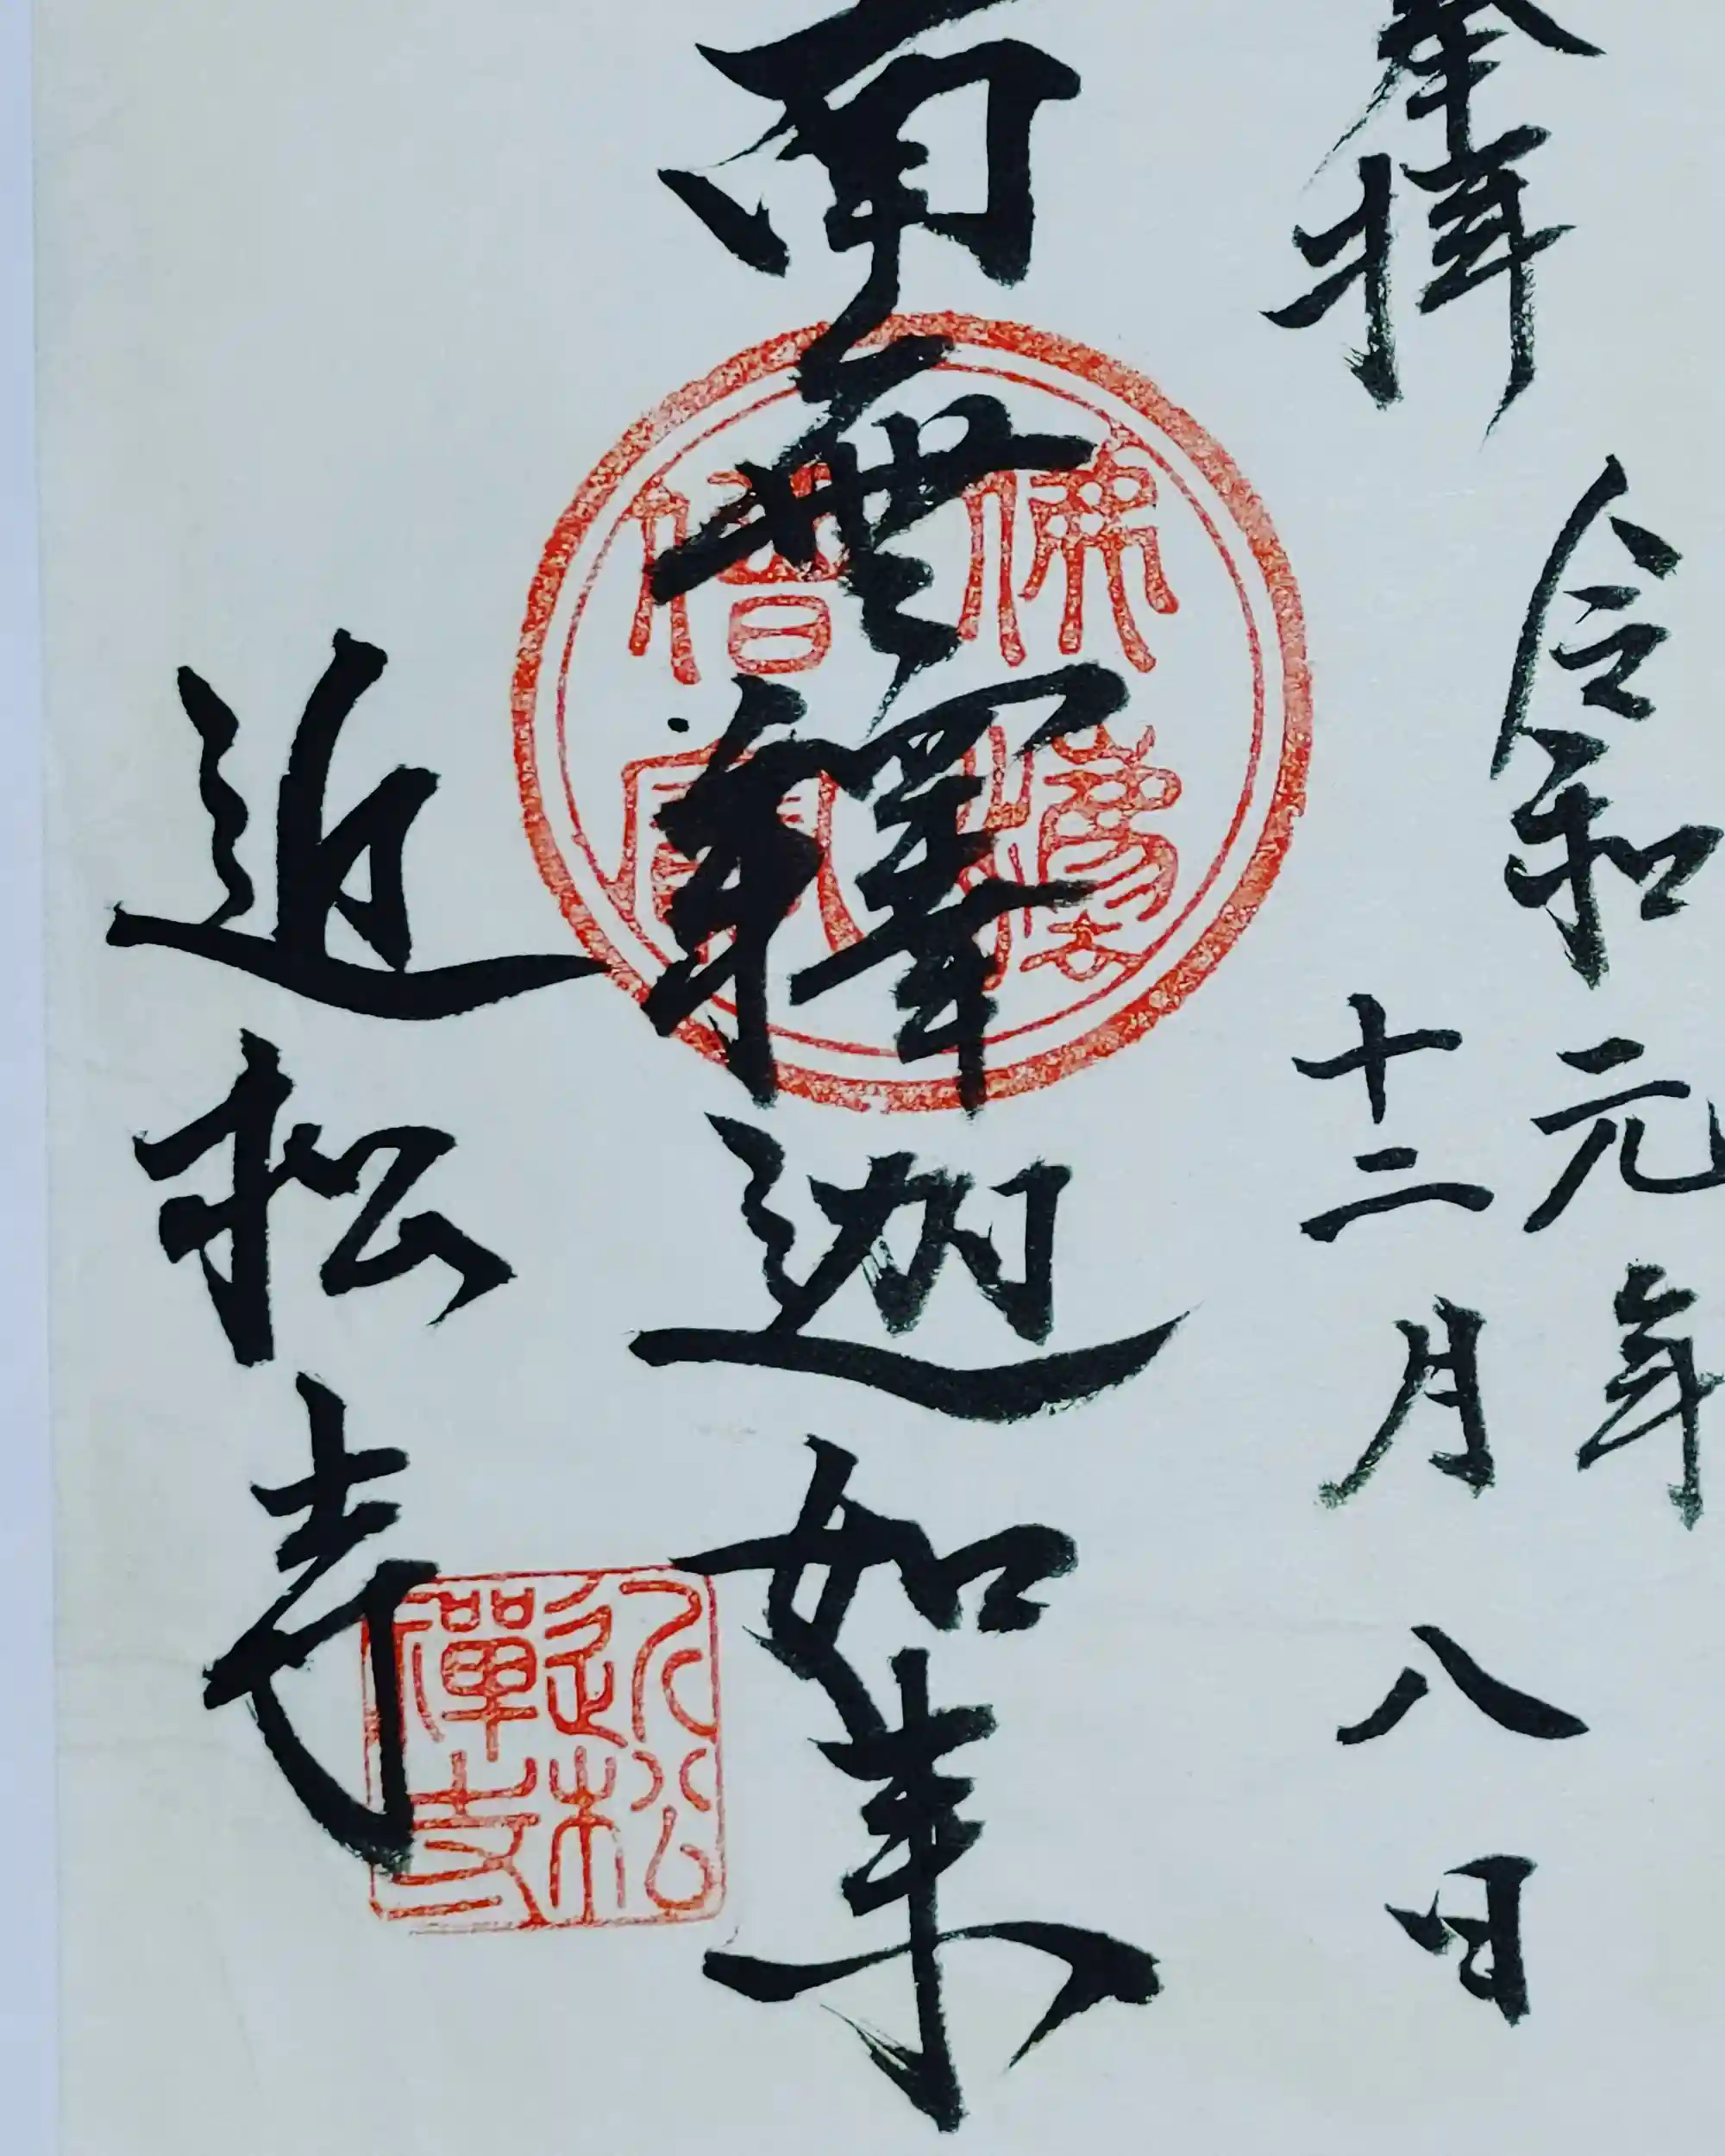 奉拝
令和元年
十二月八日
南無釋迦如来
佛法僧寳
近松寺
近松禅寺